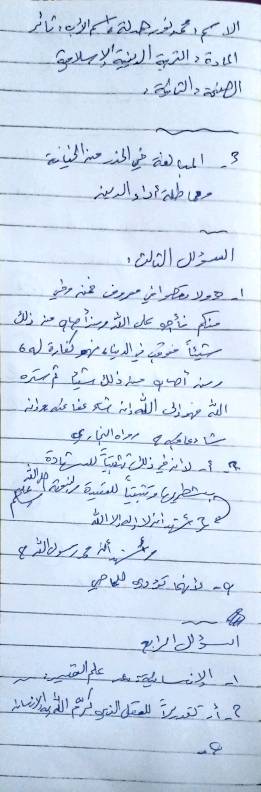 الاسم: محمد نور حمدلة اسم الأب: ثائر
المادة: التربية الدينية الإسلامية
الصفحة: الثالثة
3- المبالغة في الحذر من الخيانة
ومماطلة أداء الدين
السؤال الثالث:
1- ولا تعصوا في معروف فمن وفى
منكم فأجره على الله ومن أصاب من ذلك
شيئاً فعوقب في الدنيا فهو كفارة له
ومن أصاب من ذلك شيئاً ثم ستره
الله فهو إلى الله إن شاء عفا عنه وإن
شاء عاقبه رواه البخاري
2- أ- لأنه في ذلك تثبيتاً للشهادة
وتثبيتاً للعقيدة
أشهد أن لا إله إلا الله
وأشهد أن محمد رسول الله
ب- لأنها تؤدي للمعاصي
السؤال الرابع
1- الإنسانية علم
2- أ- تقديراً للعقل الذي كرم الله به الإنسان
ب-